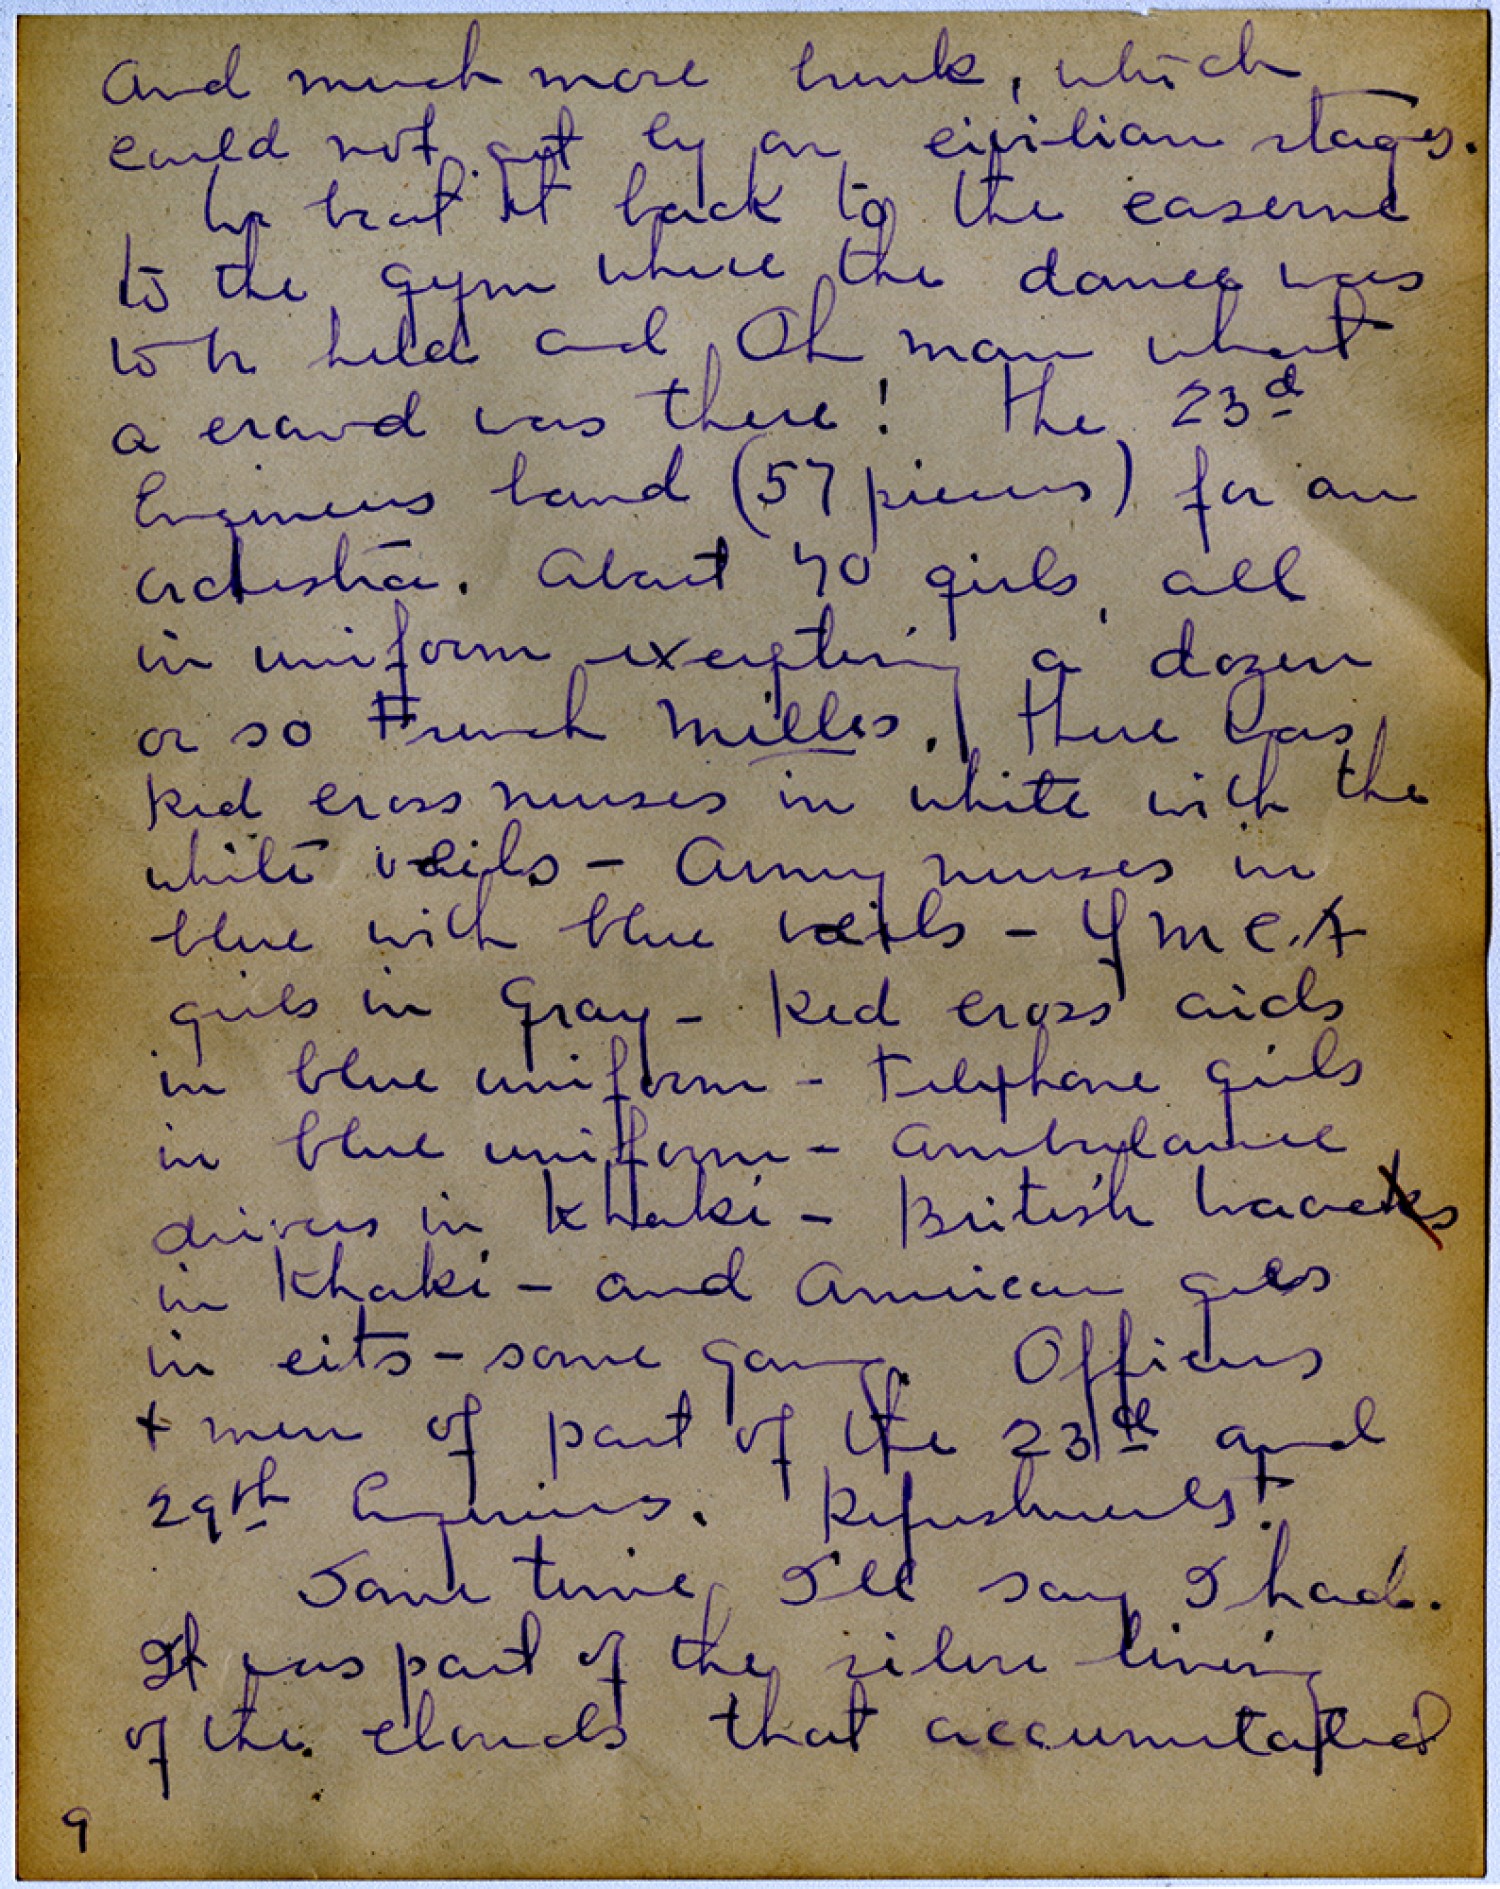 And much more bunk, which
could not get by on civilian stages.
We beat it back to the caserne
to the gym where the dance was
to be held and Oh man what
a crowd was there! The 23d
Engineers band (57 pieces) for an
orchestra. About 70 girls, all
in uniform excepting a dozen
or so French Milles. There was
Red cross nurses in white with the
white veils - Army nurses in
blue with blue veils - YMCA
girls in Gray - Red cross aids
in blue uniform - Telephone girls
in blue uniform - Ambulance
drivers in Khaki - British
in Khaki - and American girls
in cits - some gang. Officers
+ men of part of the 23rd and
29th Engineers. Refreshments!
Some time, I'll say I had.
It was part of the silver lining
of the clouds that accumulated
9